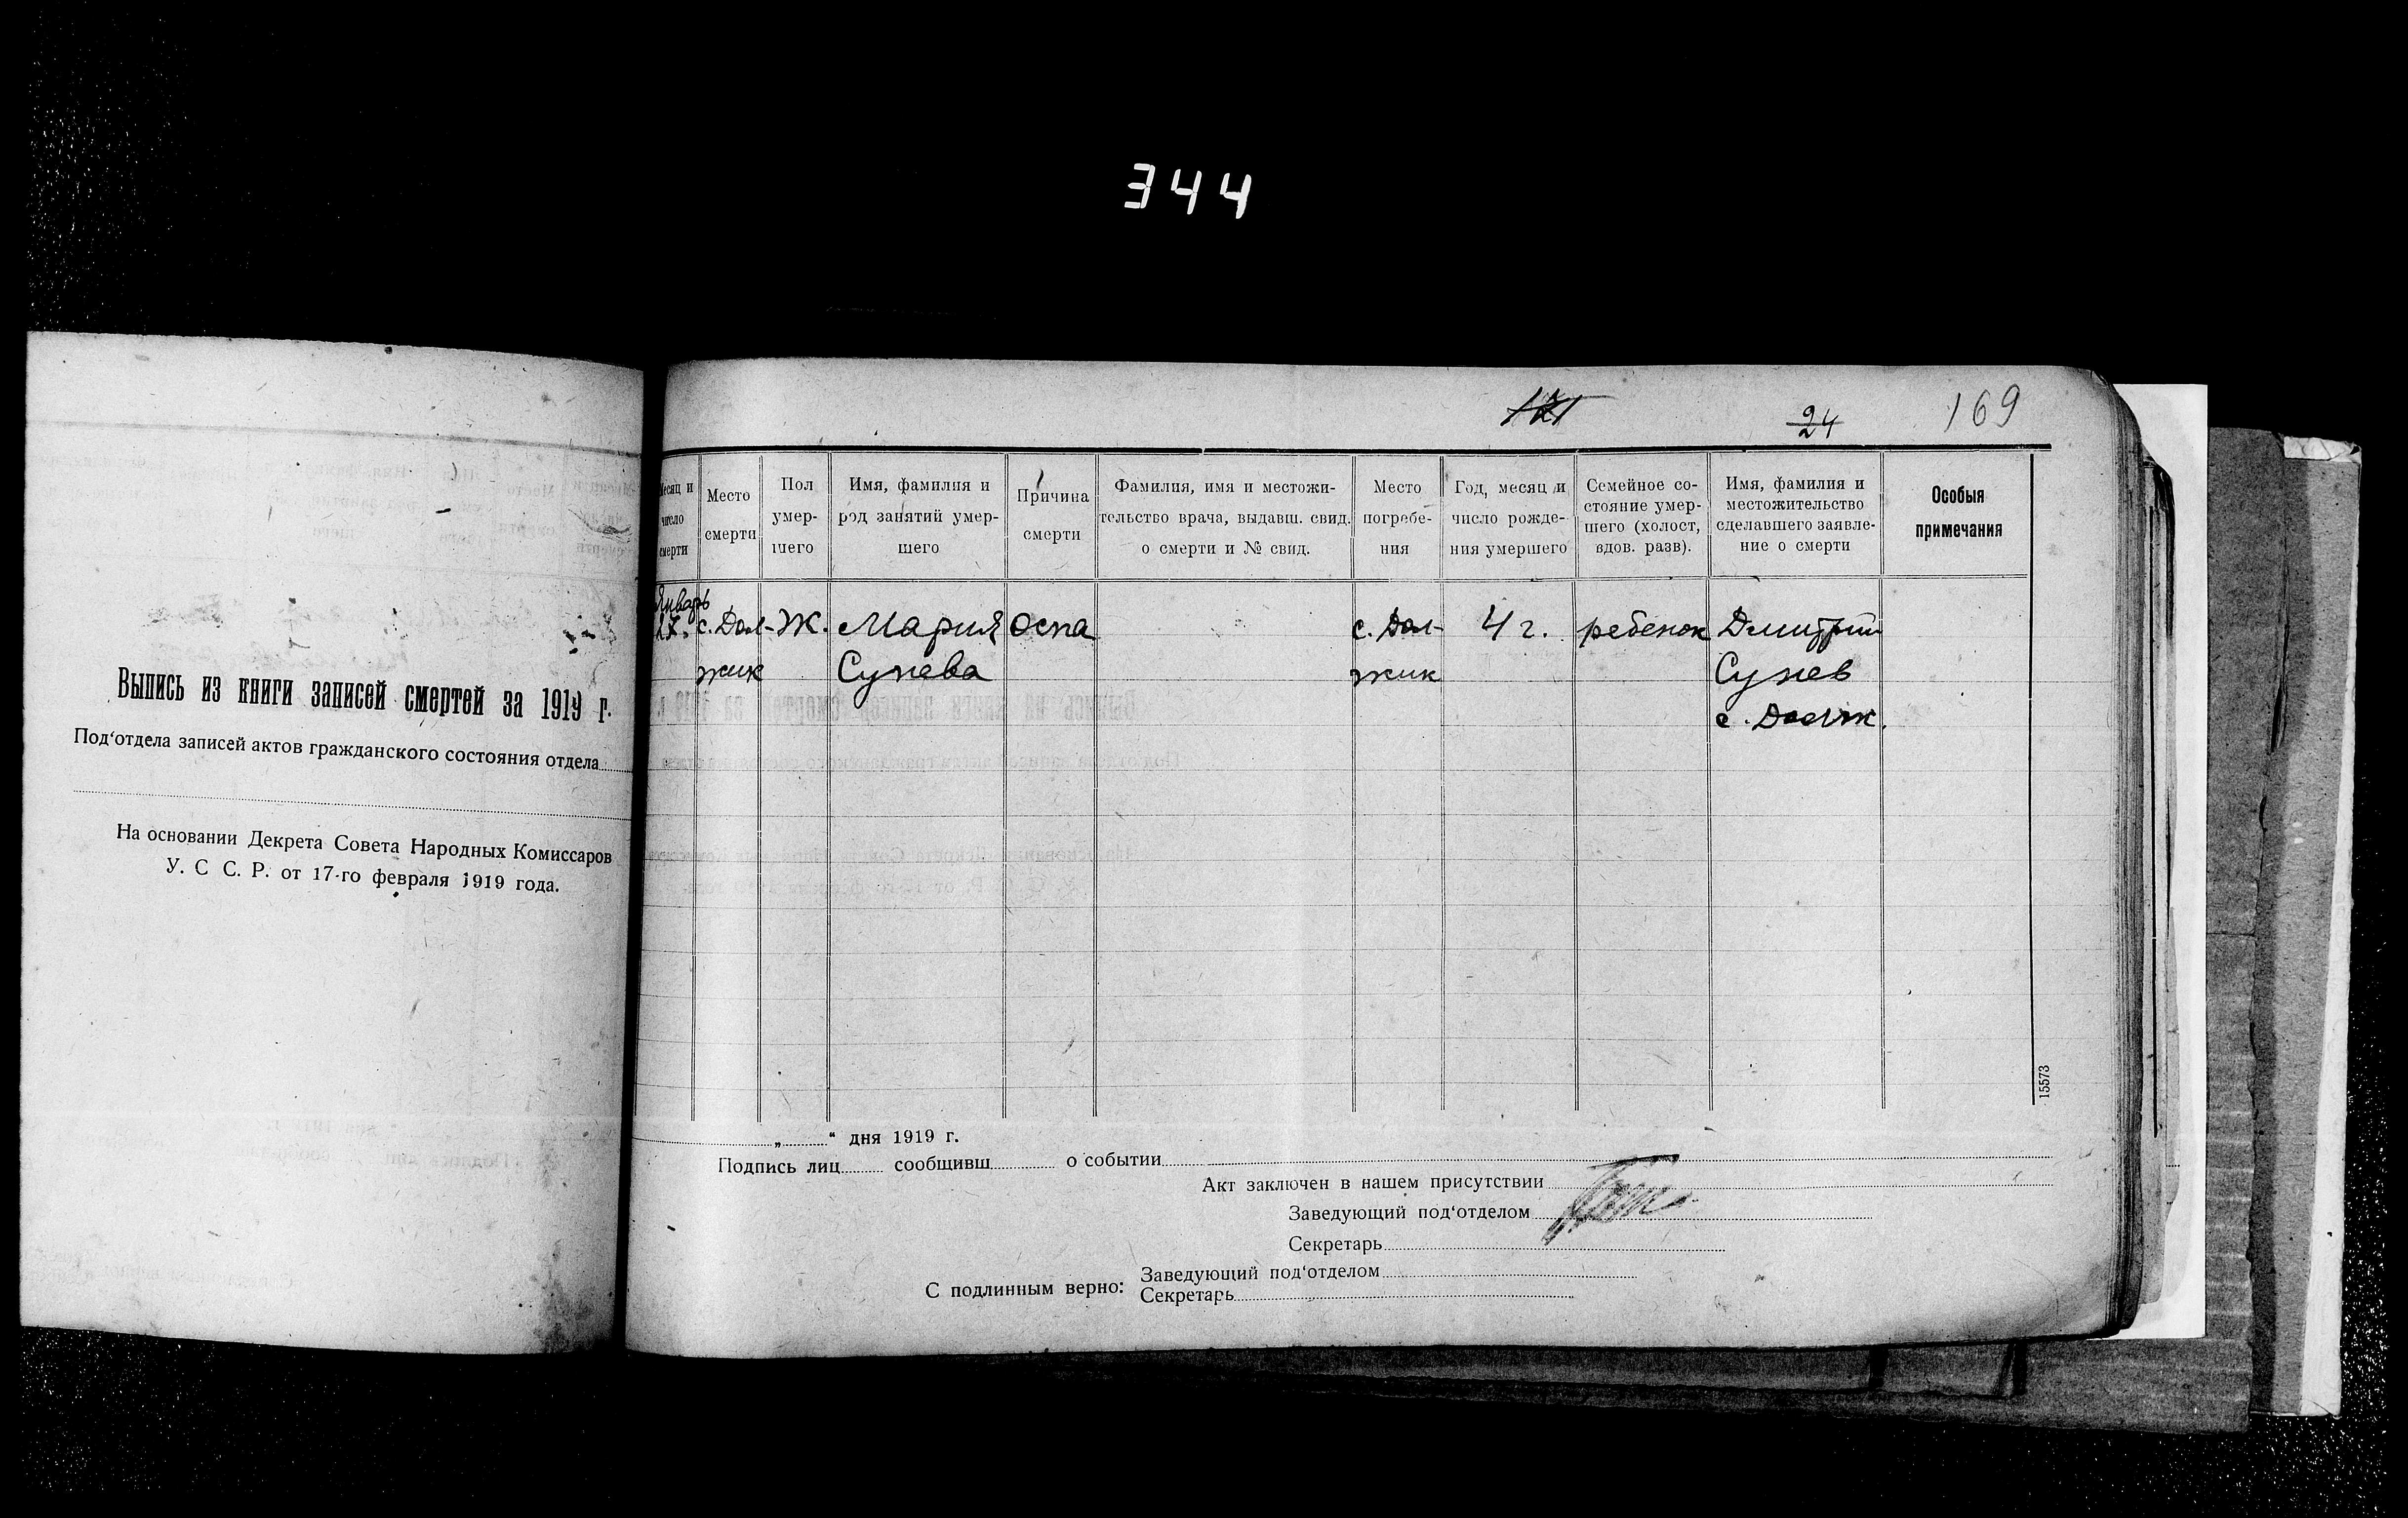 344
Выпись из книги записей смертей за 1919 г.
Под‘отдела записей актов гражданского состояния отдела
На основании Декрета Совета Народных Комиссаров
У. С С. Р. от 17-го февраля 1919 года.
24
169
Месяц и число смерти
Место смерти
Пол умер-
шего
Имя, фамилия и
род занятий умер-
шего
Причина
смерти
Фамилия, имя и местожи-
тельство врача, выдавш. свид.
о смерти и № свид.
Место
погребе-
ния
Год, месяц и
число рожде-
ния умершего
Семейное со-
стояние умер-
шего (холост,
вдов. разв).
Имя, фамилия и
местожительство
сделавшего заявле-
ние о смерти
Особыя
примечания
Январь
с. Дол- Ж. Мария Оспа с. Дол- 4 г. ребенок Дмитрий
жик Сунева жик Сунев
с. Должик.
15573
„ “ дня 1919 г.
Подпись лиц сообщивш о событии
Акт заключен в нашем присутствии
Заведующий под‘отделом
Секретарь
С подлинным верно:
Заведующий под‘отделом
Секретарь